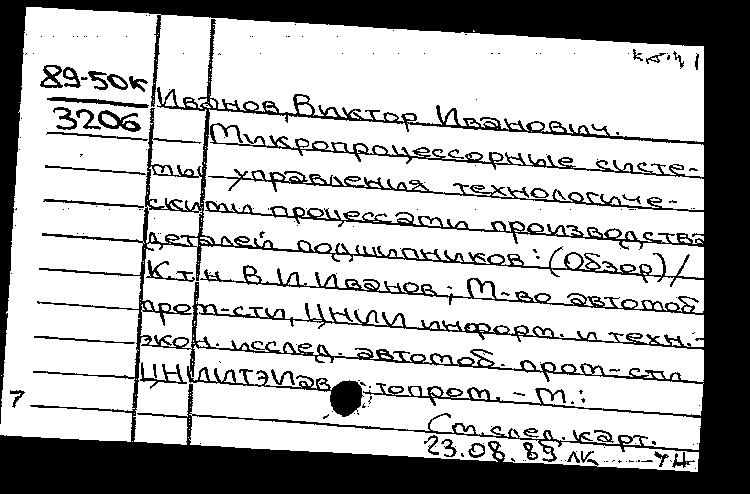 89-50к
3206
Иванов, Виктор Иванович.
Микропроцессорные систе-
мы управления технологиче-
скими процессами производства
деталей подшипников : (Обзор) /
К.т.н В. И. Иванов ; М-во автомоб.
пром-сти, ЦНИИ информ. и техн.-
экон. исслед. автомоб. пром-сти
ЦНИИТЭИавтопром. - М. :
7
См. след. карт.
23.08.89 лк